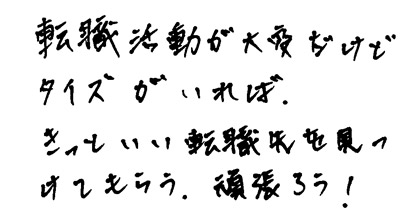 転職活動が大変だけど
タイズがいれば.
きっといい転職先を見つ
けてもらう.頑張ろう!